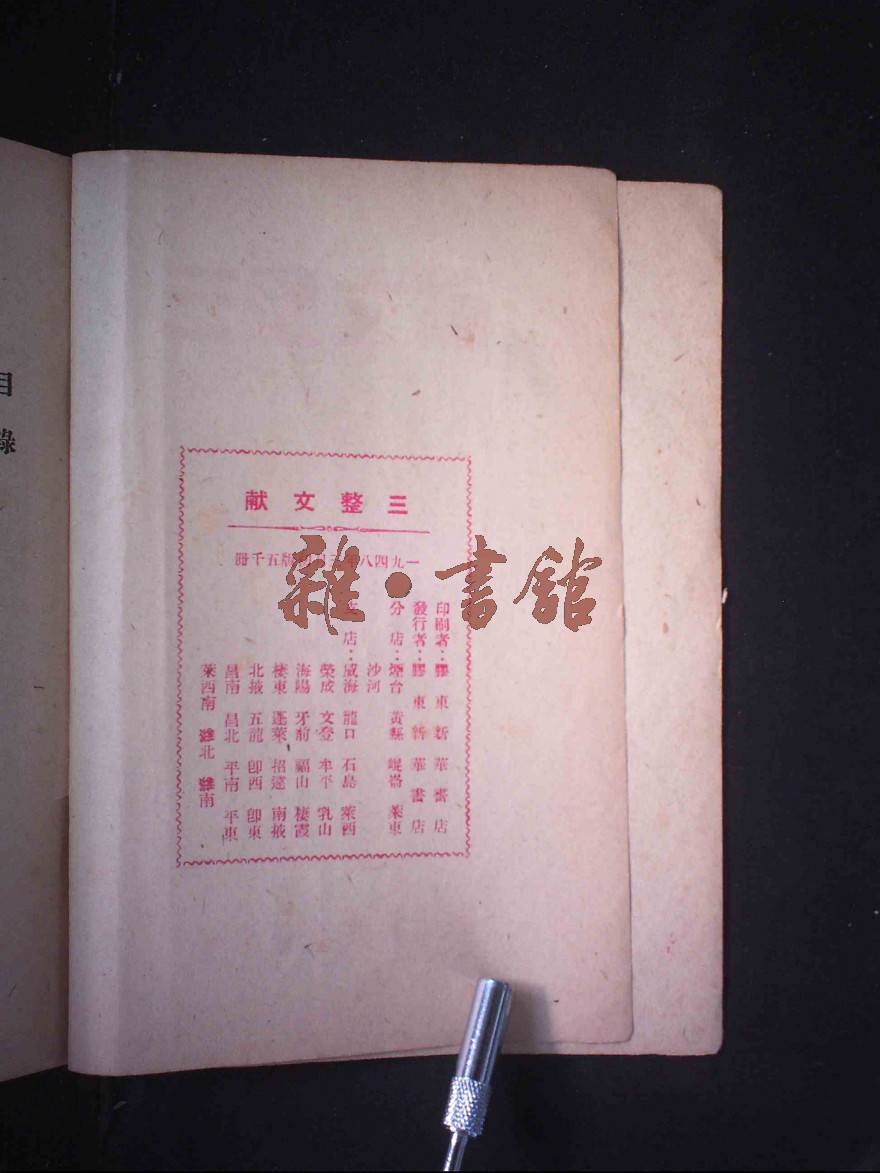 三整文献
一九四八年三月初版五千冊
印刷者：膠東新華書店
發行者：膠東新華書店
分店：煙台 黃縣 崐嵛 萊東
沙河
支店：威海 龍口 石島 萊西
榮成 文登 牟平 乳山
海陽 牙前 福山 棲霞
棲東 蓬萊 招遠 南掖
北掖 五龍 卽西 卽東
昌南 昌北 平南 平東
萊西南 濰北 濰南
目錄
雜·書舘